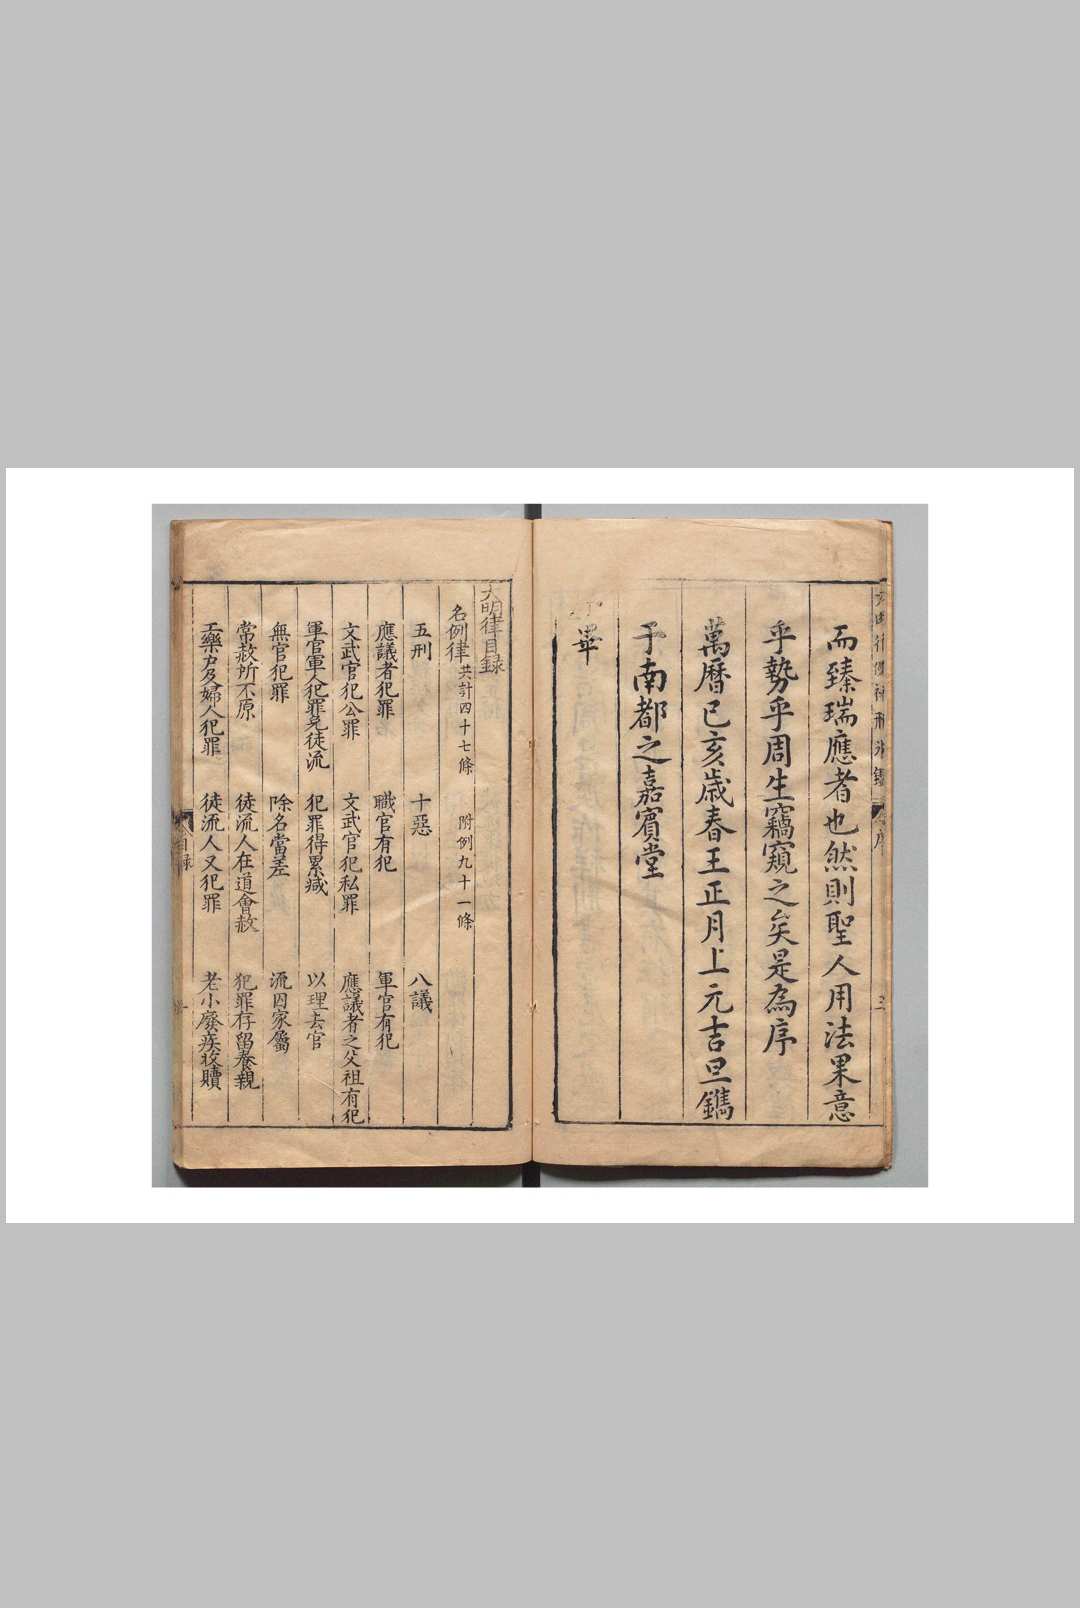 而臻瑞應者也然則聖人用法果意
乎勢乎周生竊窺之矣是為序
萬曆己亥歲春王正月上元吉旦鐫
于南都之嘉賓堂
畢
大明律目録
名例律 共計四十七條 附例九十一條
五刑 十惡 八議
應議者犯罪 職官有犯 軍官有犯
文武官犯公罪 文武官犯私罪 應議者之父祖有犯
軍官軍人犯罪免徒流 犯罪得累減 以理去官
無官犯罪 除名當差 流囚家屬
常赦所不原 徒流人在道會赦 犯罪存留養親
工樂户及婦人犯罪 徒流人又犯罪 老小廢疾收贖
目録